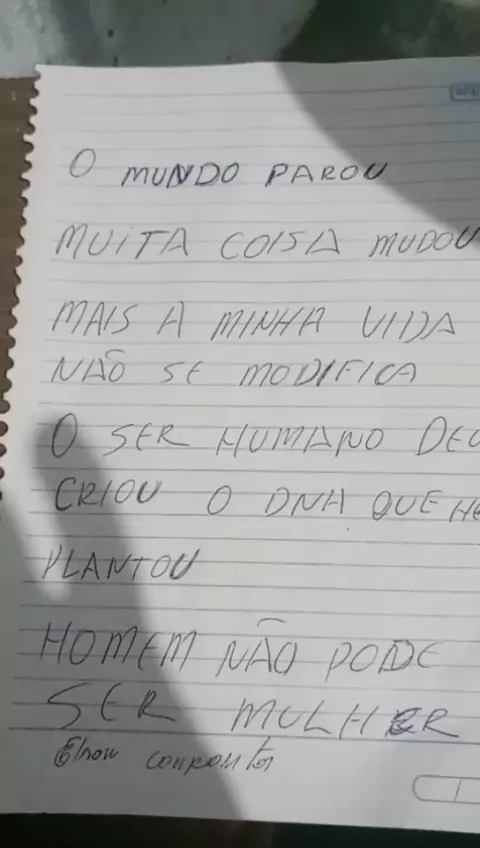 O MUNDO PAROU
MUITA COISA MUDOU
MAIS A MINHA VIDA
NÃO SE MODIFICA
O SER HUMANO DEU
CRIOU O DNA QUE HE
PLANTOU
HOMEM NÃO PODE
SER MULHER